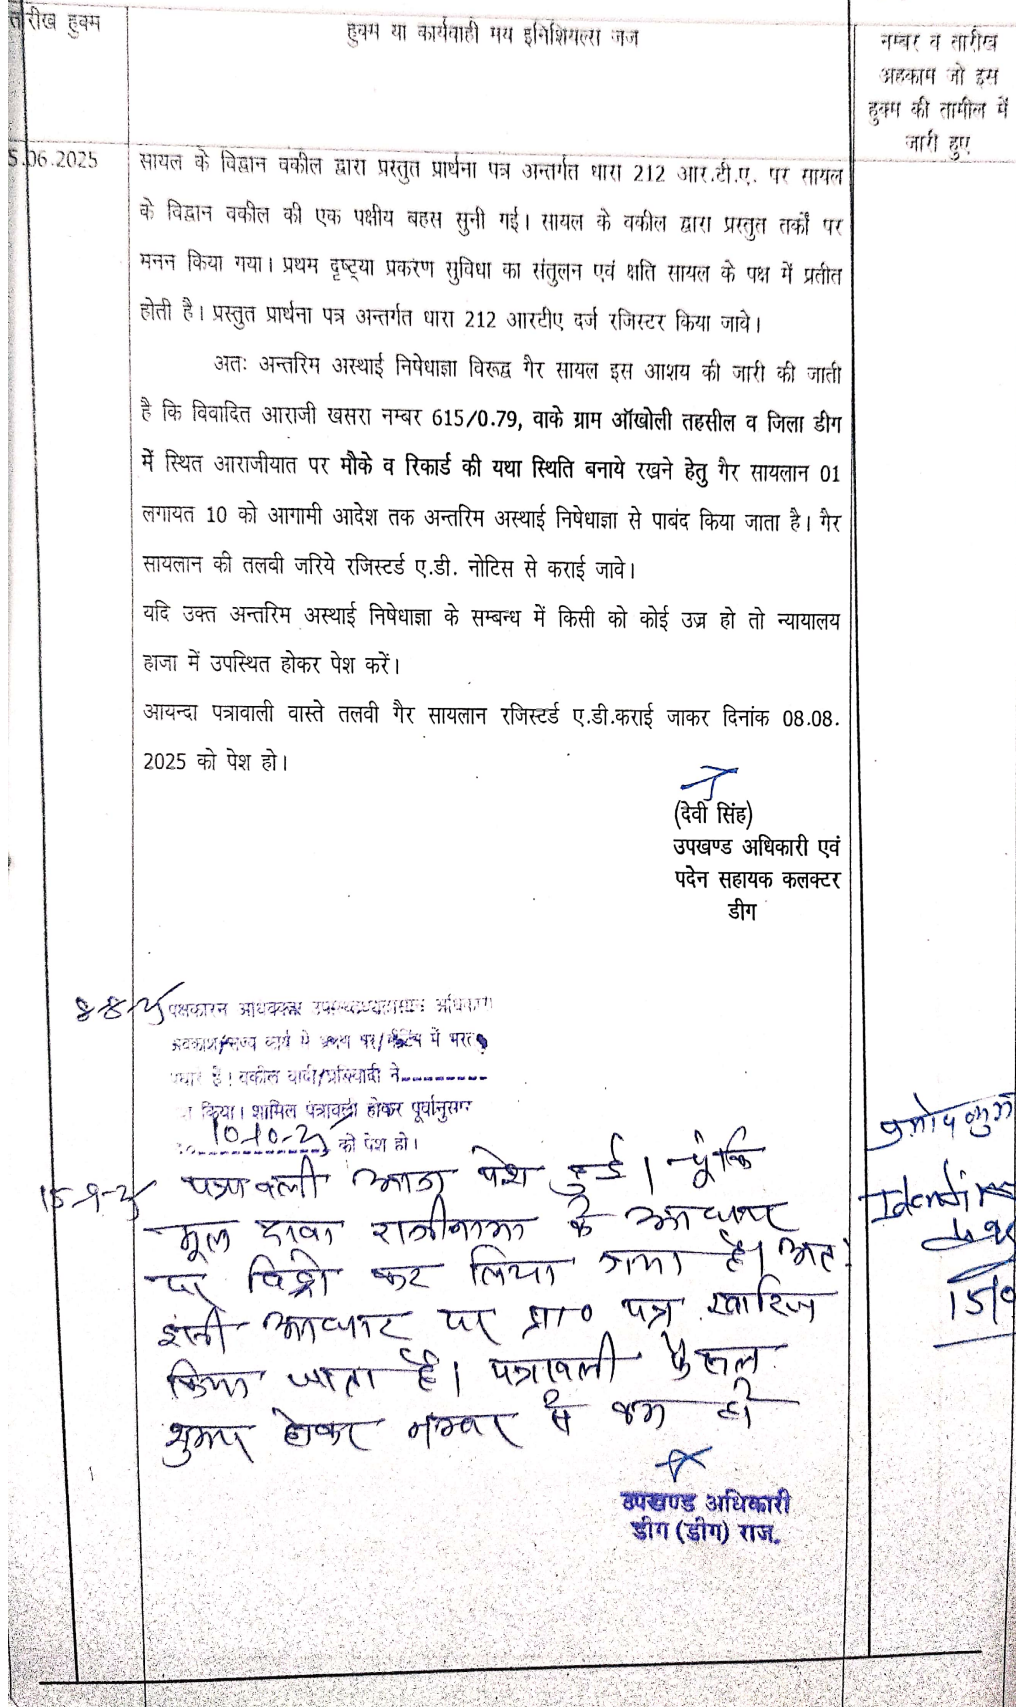 तारीख हुक्म
हुक्म या कार्यवाही मय इनिशियल्स जज
नम्बर व तारीख
अहकाम जो इस
हुक्म की तामील में
जारी हुए
5.06.2025
सायल के विद्वान वकील द्वारा प्रस्तुत प्रार्थना पत्र अन्तर्गत धारा 212 आर.टी.ए. पर सायल
के विद्वान वकील की एक पक्षीय बहस सुनी गई। सायल के वकील द्वारा प्रस्तुत तर्कों पर
मनन किया गया। प्रथम दृष्ट्या प्रकरण सुविधा का संतुलन एवं क्षति सायल के पक्ष में प्रतीत
होती है। प्रस्तुत प्रार्थना पत्र अन्तर्गत धारा 212 आरटीए दर्ज रजिस्टर किया जावे।
अतः अन्तरिम अस्थाई निषेधाज्ञा विरूद्व गैर सायल इस आशय की जारी की जाती
है कि विवादित आराजी खसरा नम्बर 615/0.79, वाके ग्राम ऑखोली तहसील व जिला डीग
में स्थित आराजीयात पर मौके व रिकार्ड की यथा स्थिति बनाये रखने हेतु गैर सायलान 01
लगायत 10 को आगामी आदेश तक अन्तरिम अस्थाई निषेधाज्ञा से पाबंद किया जाता है। गैर
सायलान की तलवी जरिये रजिस्टर्ड ए.डी. नोटिस से कराई जावे।
यदि उक्त अन्तरिम अस्थाई निषेधाज्ञा के सम्बन्ध में किसी को कोई उज्र हो तो न्यायालय
हाजा में उपस्थित होकर पेश करें।
आयन्दा पत्रावाली वास्ते तलवी गैर सायलान रजिस्टर्ड ए.डी.कराई जाकर दिनांक 08.08.
2025 को पेश हो।
(देवी सिंह)
उपखण्ड अधिकारी एवं
पदेन सहायक कलक्टर
डीग
8-8-25 पक्षकारन
में
है। वकील वादी/प्रतिवादी ने
किया। शामिल पत्रावली होकर पूर्वानुसार
10-10-25 को पेश हो।
15-9-25 पत्रावली आज पेश हुई। चूंकि
मूल दावा राजीनामा के आधार
पर डिक्री कर लिया गया है। अतः
इसी आधार पर प्रा० पत्र खारिज
किया जाता है। पत्रावली फैसल
शुमार होकर नम्बर से कम हो
उपखण्ड अधिकारी
डीग (डीग) राज.
15/9